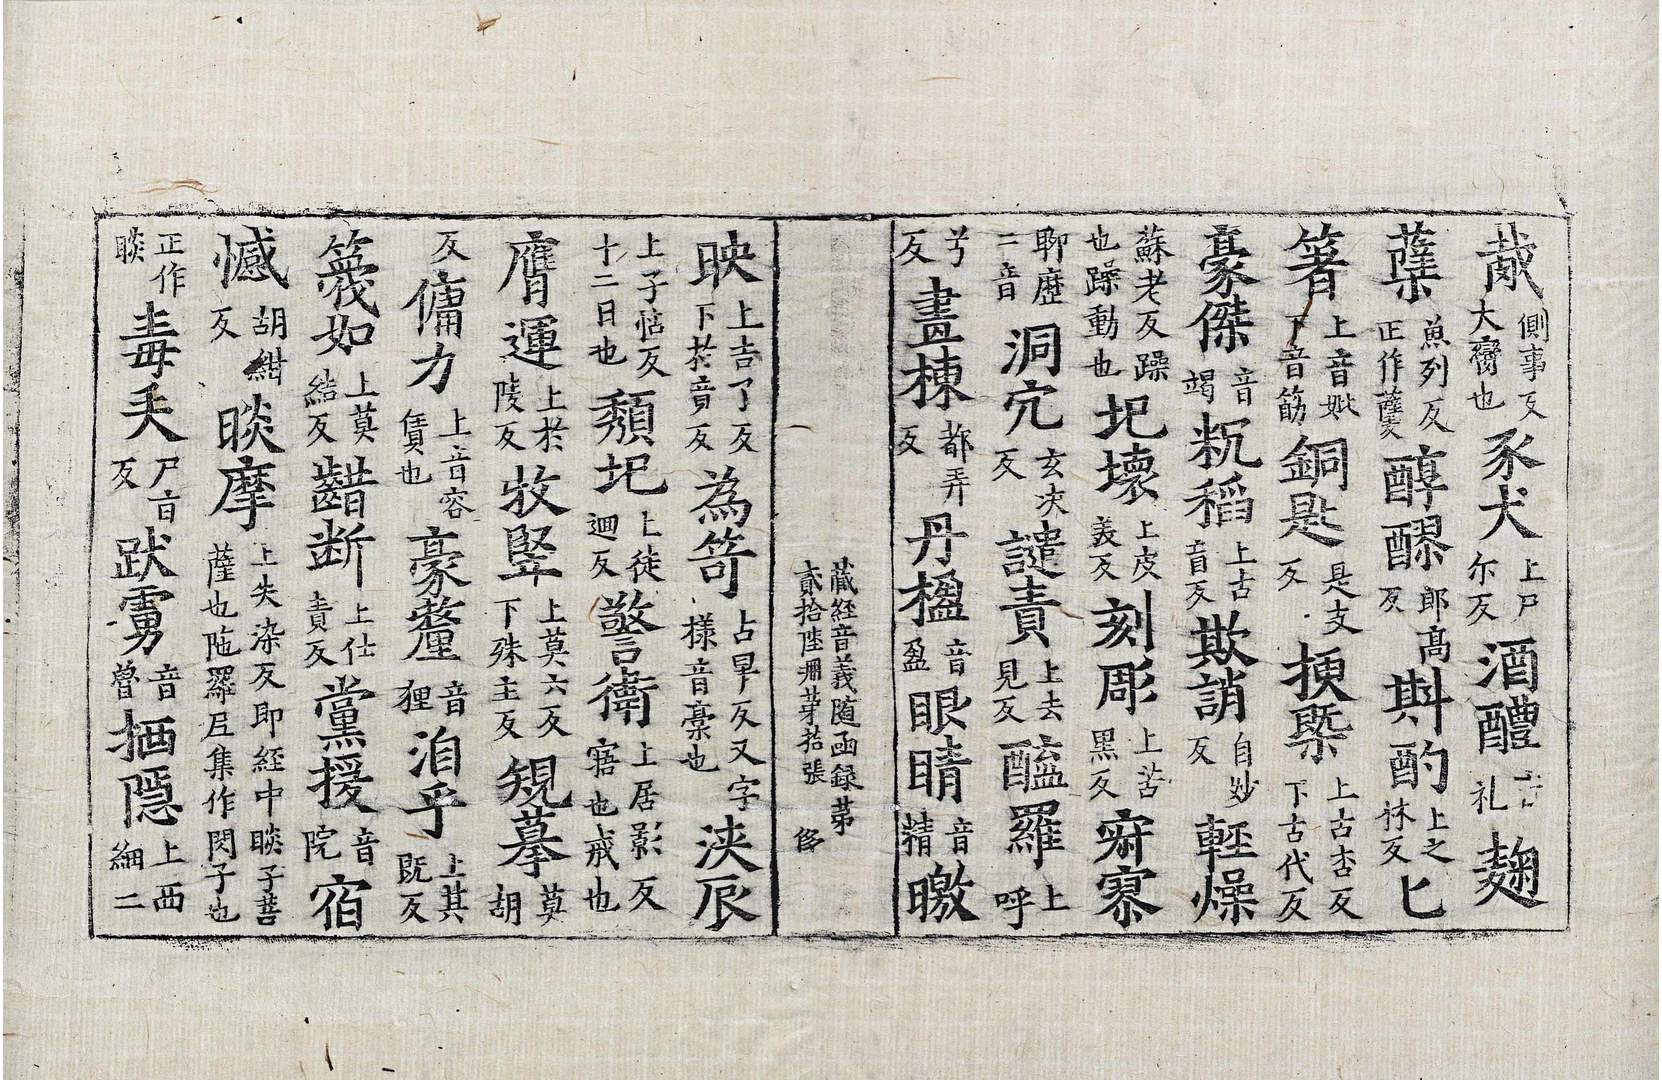 胾側事反大臠也豕犬上尸尒反酒醴音礼麹
蘖魚列反正作糵醇醪郎高反斟酌上之抹反匕
箸上音妣下音筯銅匙是支反挭槩上古杏反下古代反
豪傑音竭粇稻上古音反欺誚自妙反輕燥
蘇老反躁也躁動也圯壞上皮義反刻彫上苦黒反寂寥
聊歷二音洞穴玄決反譴責上去見反醯羅上呼
兮反畫棟都弄反丹楹音盈眼睛音精曒
藏經音義随函録第貳拾陸册第拾張
映上吉了反下於竟反為笴占早反又字樣音稾也浹辰
上子恬反十二日也頽圯上徒迴反警衛上居影反寤也戒也
膺運上於陵反牧竪上莫六反下殊主反規摹莫胡
反傭力上音容賃也豪釐音狸洎乎上其既反
篾如上莫結反齰断上仕責反黨援音院宿
憾胡紺反睒摩上失染反即經中睒子菩薩也陁羅尼集作閃子也
正作睒毒矢尸旨反跋雩音曾栖隱上西細二